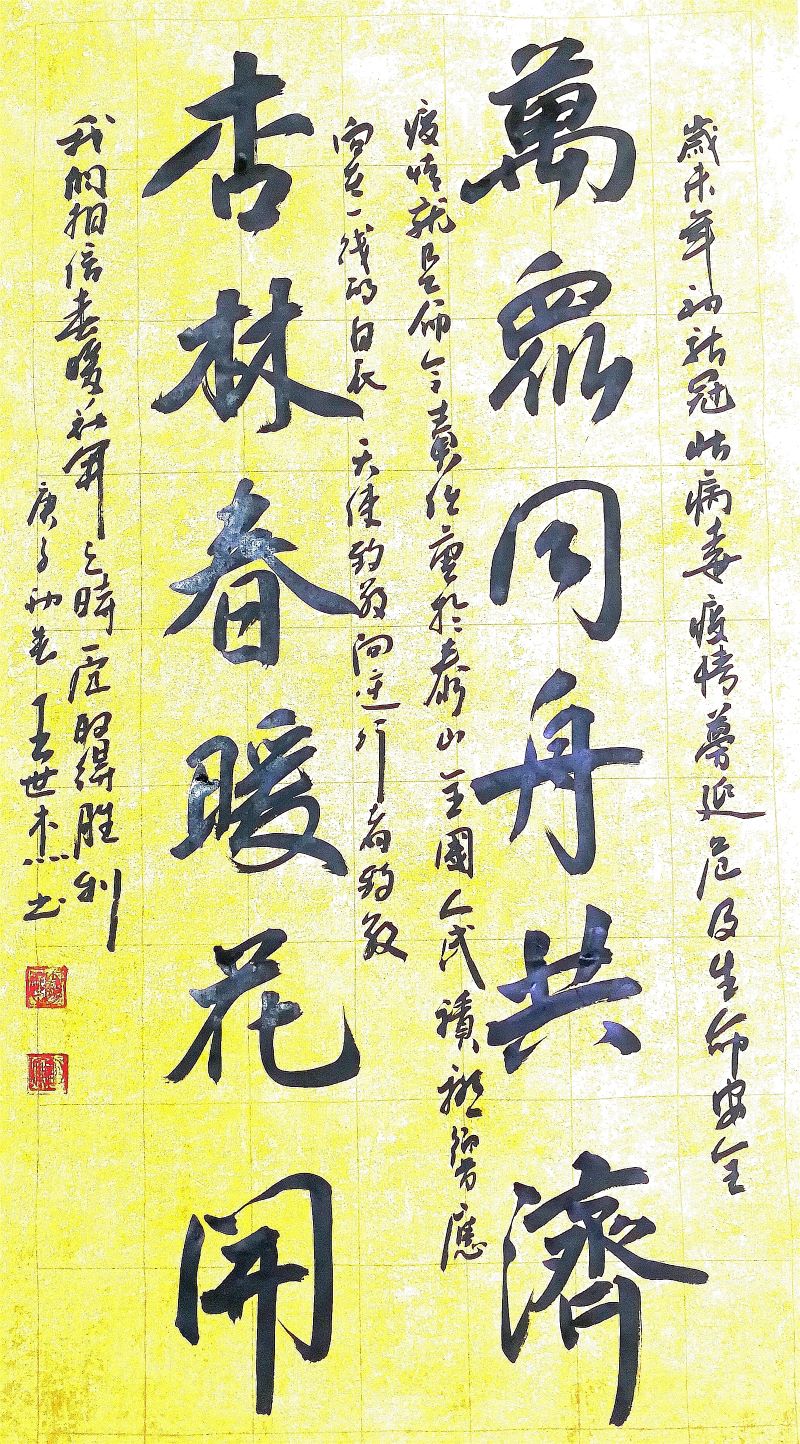 歲末年初新冠状病毒疫情蔓延危及生命安全
萬眾同舟共濟
疫情就是命令責任重於泰山全國人民積極響應
向在一线的白衣天使致敬向逆行者致敬
杏林春暖花開
我们相信春暖花開之時一定取得胜利
庚子初春王世杰书